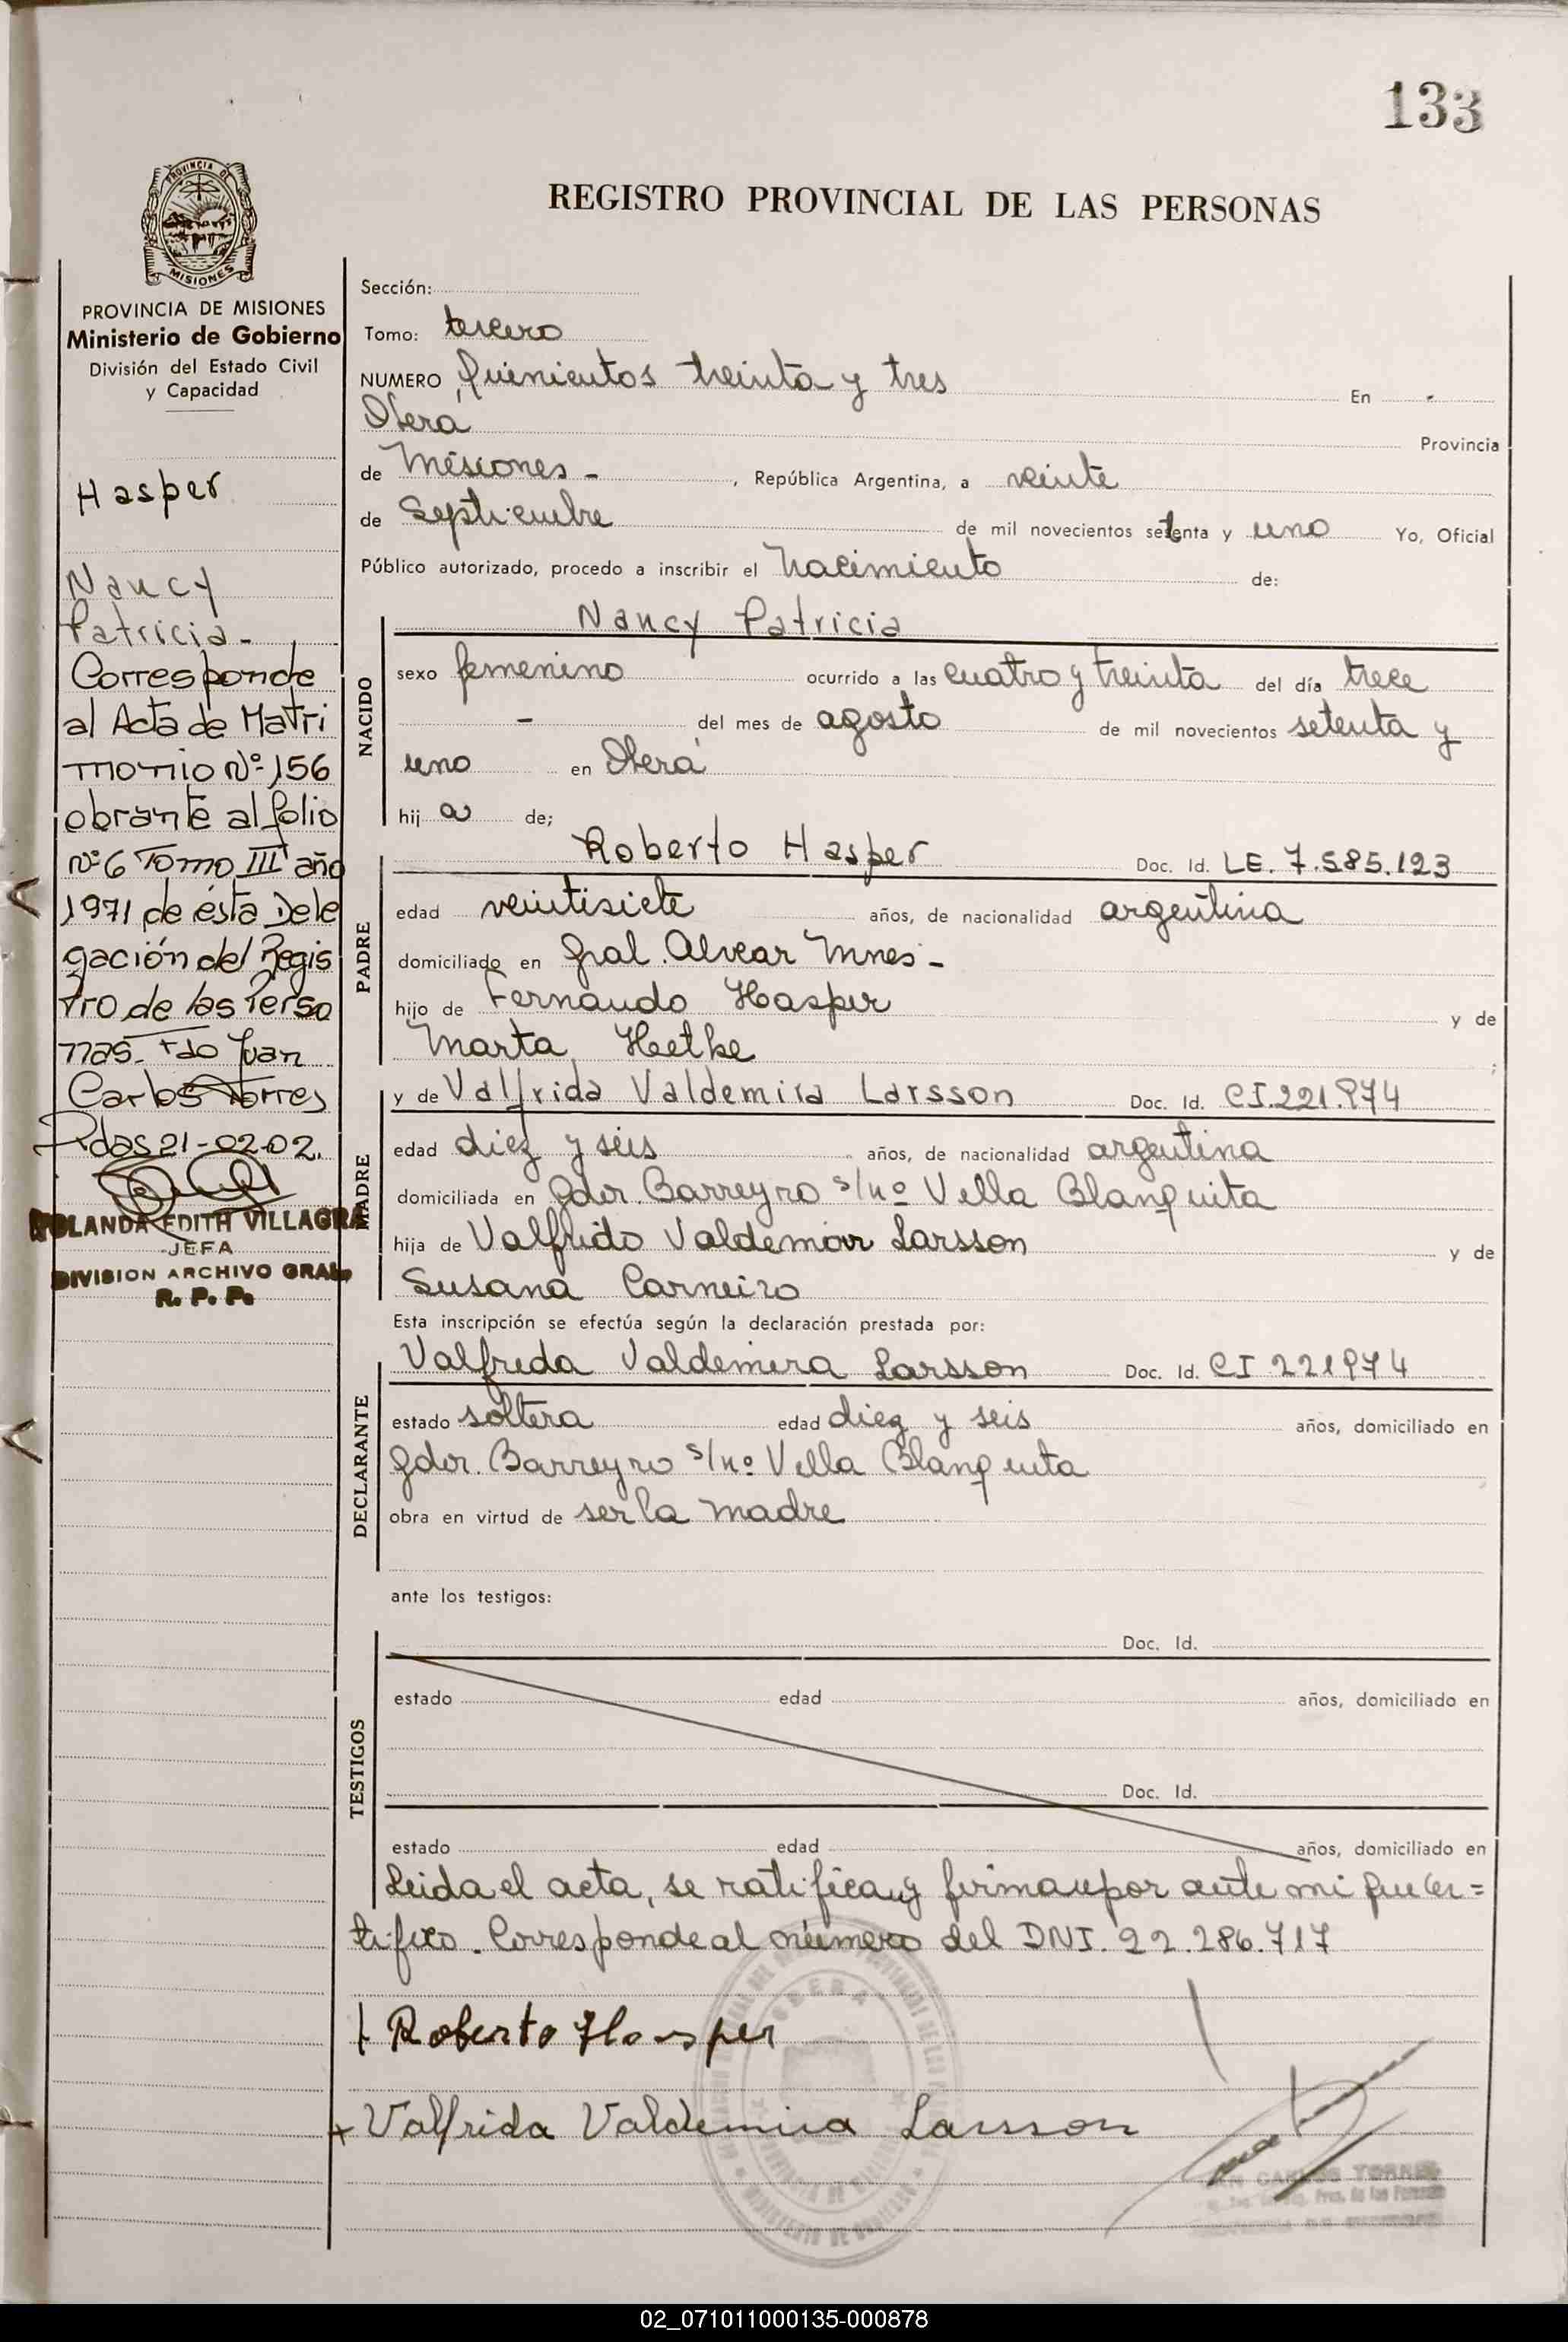 133
PROVINCIA DE
MISIONES
REGISTRO PROVINCIAL DE LAS PERSONAS
PROVINCIA DE MISIONES
Ministerio de Gobierno
División del Estado Civil
y Capacidad
Hasper
Nancy
Patricia-
Corresponde
al Acta de Matri
monio Nº 156
obrante al folio
Nº 6 Tomo III año
1971 de ésta Dele
gación del Regis
tro de las Perso
nas- Fdo Juan
Carlos Torres
Pdas 21-02-02.
YOLANDA EDITH VILLAGRA
JEFA
DIVISION ARCHIVO GRAL.
R. P. P.
Sección:
Tomo: tercero
NUMERO Quinientos treinta y tres En -
Oberá Provincia
de Misiones - , República Argentina, a veinte
de Septiembre de mil novecientos setenta y uno Yo, Oficial
Público autorizado, procedo a inscribir el Nacimiento de:
NACIDO
Nancy Patricia
sexo femenino ocurrido a las cuatro y treinta del día trece
- del mes de agosto de mil novecientos setenta y
uno en Oberá
hij a de;
PADRE
Roberto Hasper Doc. Id. LE. 7.585.123
edad veintisiete años, de nacionalidad argentina
domiciliado en Gral. Alvear Mnes-
hijo de Fernando Hasper y de
Marta Hetke ;
MADRE
y de Valfrida Valdemira Larsson Doc. Id. CI.221.974
edad diez y seis años, de nacionalidad argentina
domiciliada en Gdor. Barreyro s/nº Villa Blanquita
hija de Valfrido Valdemar Larsson y de
Susana Carneiro
Esta inscripción se efectúa según la declaración prestada por:
DECLARANTE
Valfrida Valdemira Larsson Doc. Id. CI 221974
estado soltera edad diez y seis años, domiciliado en
Gdor. Barreyro s/nº Villa Blanquita
obra en virtud de ser la madre
ante los testigos:
TESTIGOS
Doc. Id.
estado edad años, domiciliado en
Doc. Id.
estado edad años, domiciliado en
Leida el acta, se ratifican y firman por ante mi que cer=
tifico. Corresponde al número del DNI. 22.286.717
Roberto Hasper
Valfrida Valdemira Larsson
JUAN CARLOS TORRES
02_071011000135-000878